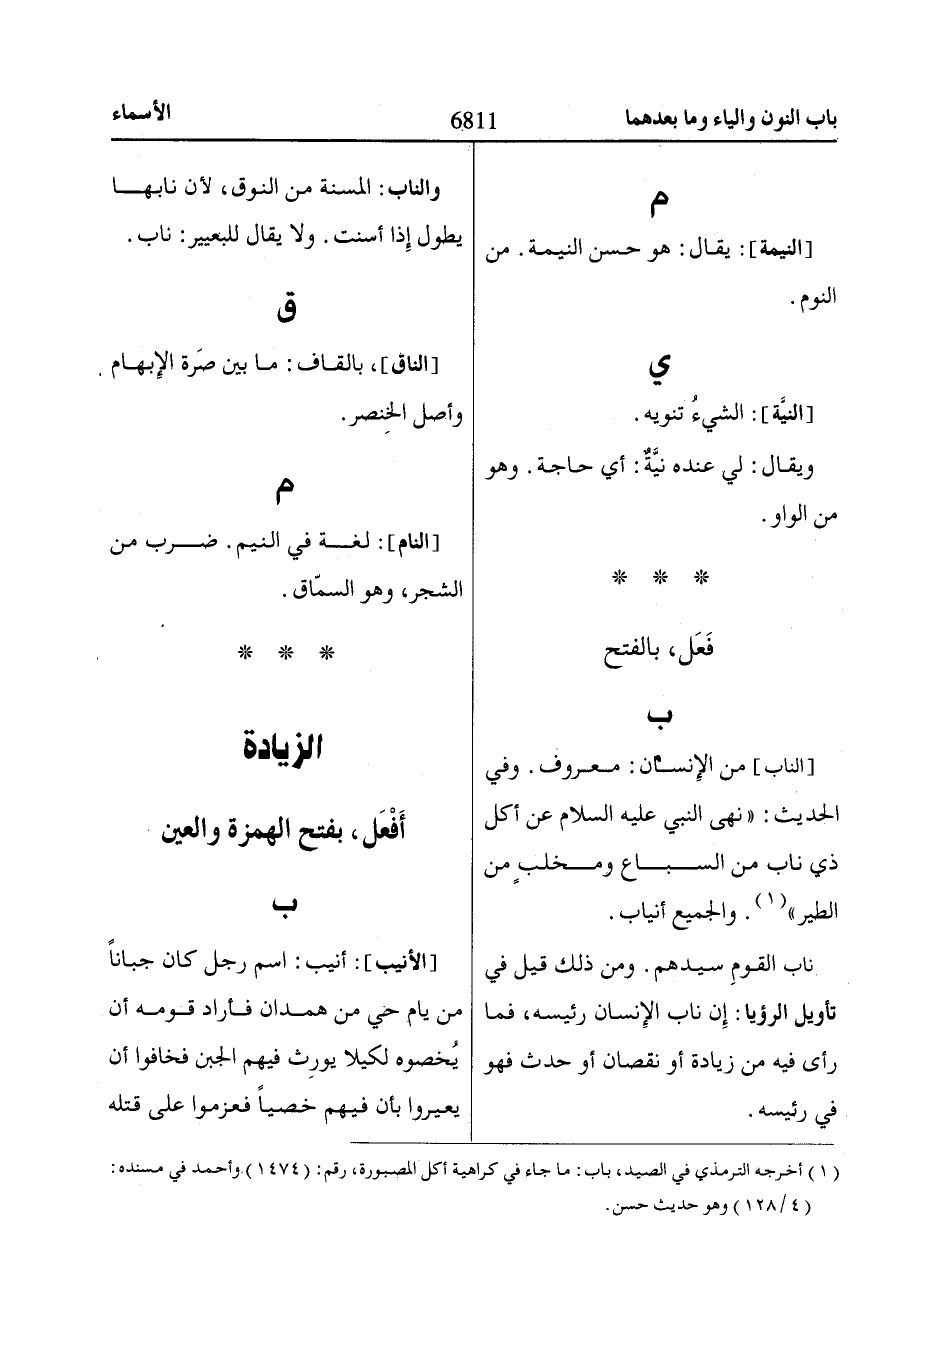 باب النون والياء وما بعدهما 6811 الأسماء
م
[النيمة]: يقال: هو حسن النيمة. من
النوم.
ي
[النيَّة]: الشيءُ تنويه.
ويقال: لي عنده نيَّةٌ: أي حاجة. وهو
من الواو.
* * *
فَعَل، بالفتح
ب
[الناب] من الإنسان: معروف. وفي
الحديث: «نهى النبي عليه السلام عن أكل
ذي ناب من السباع ومخلبٍ من
الطير»(١). والجميع أنياب.
ناب القومِ سيدهم. ومن ذلك قيل في
تأويل الرؤيا: إن ناب الإنسان رئيسه، فما
رأى فيه من زيادة أو نقصان أو حدث فهو
في رئيسه.
والناب: المسنة من النوق، لأن نابها
يطول إذا أسنت. ولا يقال للبعيير: ناب.
ق
[الناق]، بالقاف: ما بين صَرة الإبهام
وأصل الخنصر.
م
[النام]: لغة في النيم. ضرب من
الشجر، وهو السمّاق.
* * *
الزيادة
أَفْعَل، بفتح الهمزة والعين
ب
[الأنيب]: أنيب: اسم رجل كان جباناً
من يام حي من همدان فأراد قومه أن
يُخصوه لكيلا يورث فيهم الجبن فخافوا أن
يعيروا بأن فيهم خصياً فعزموا على قتله
(١) أخرجه الترمذي في الصيد، باب: ما جاء في كراهية أكل المصبورة، رقم: (١٤٧٤). وأحمد في مسنده:
(٤/١٢٨) وهو حديث حسن.